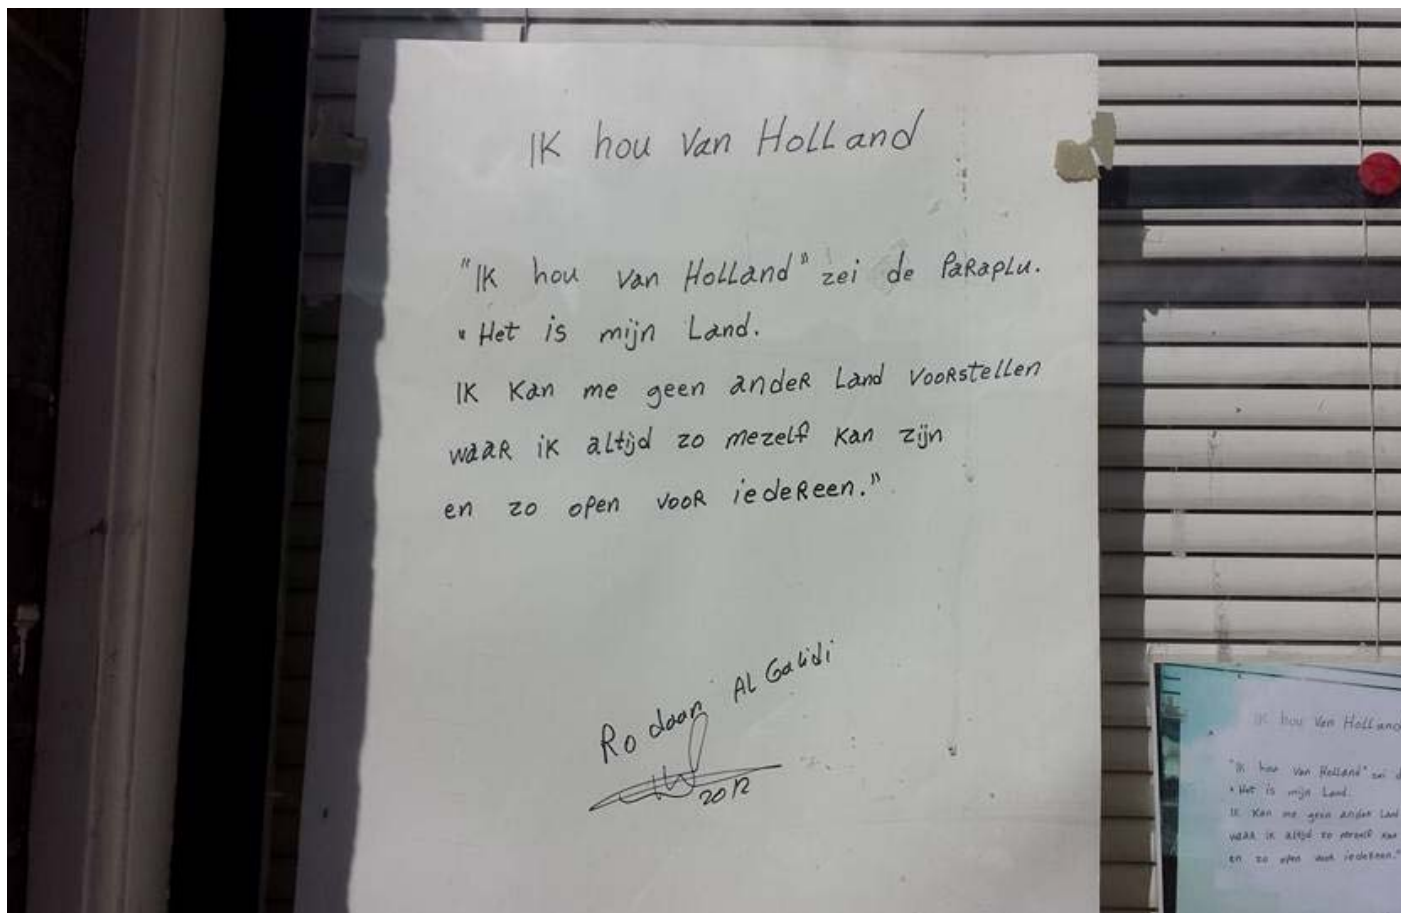 Ik hou van Holland
"Ik hou van Holland" zei de Paraplu.
"Het is mijn Land.
Ik kan me geen ander Land voorstellen
waar ik altijd zo mezelf kan zijn
en zo open voor iedereen."
Rodaan Al Galidi
2012
Ik hou van Holland
"Ik hou van Holland" zei d
"Het is mijn Land.
Ik kan me geen ander Land
waar ik altijd zo mezelf kan
en zo open voor iedereen."